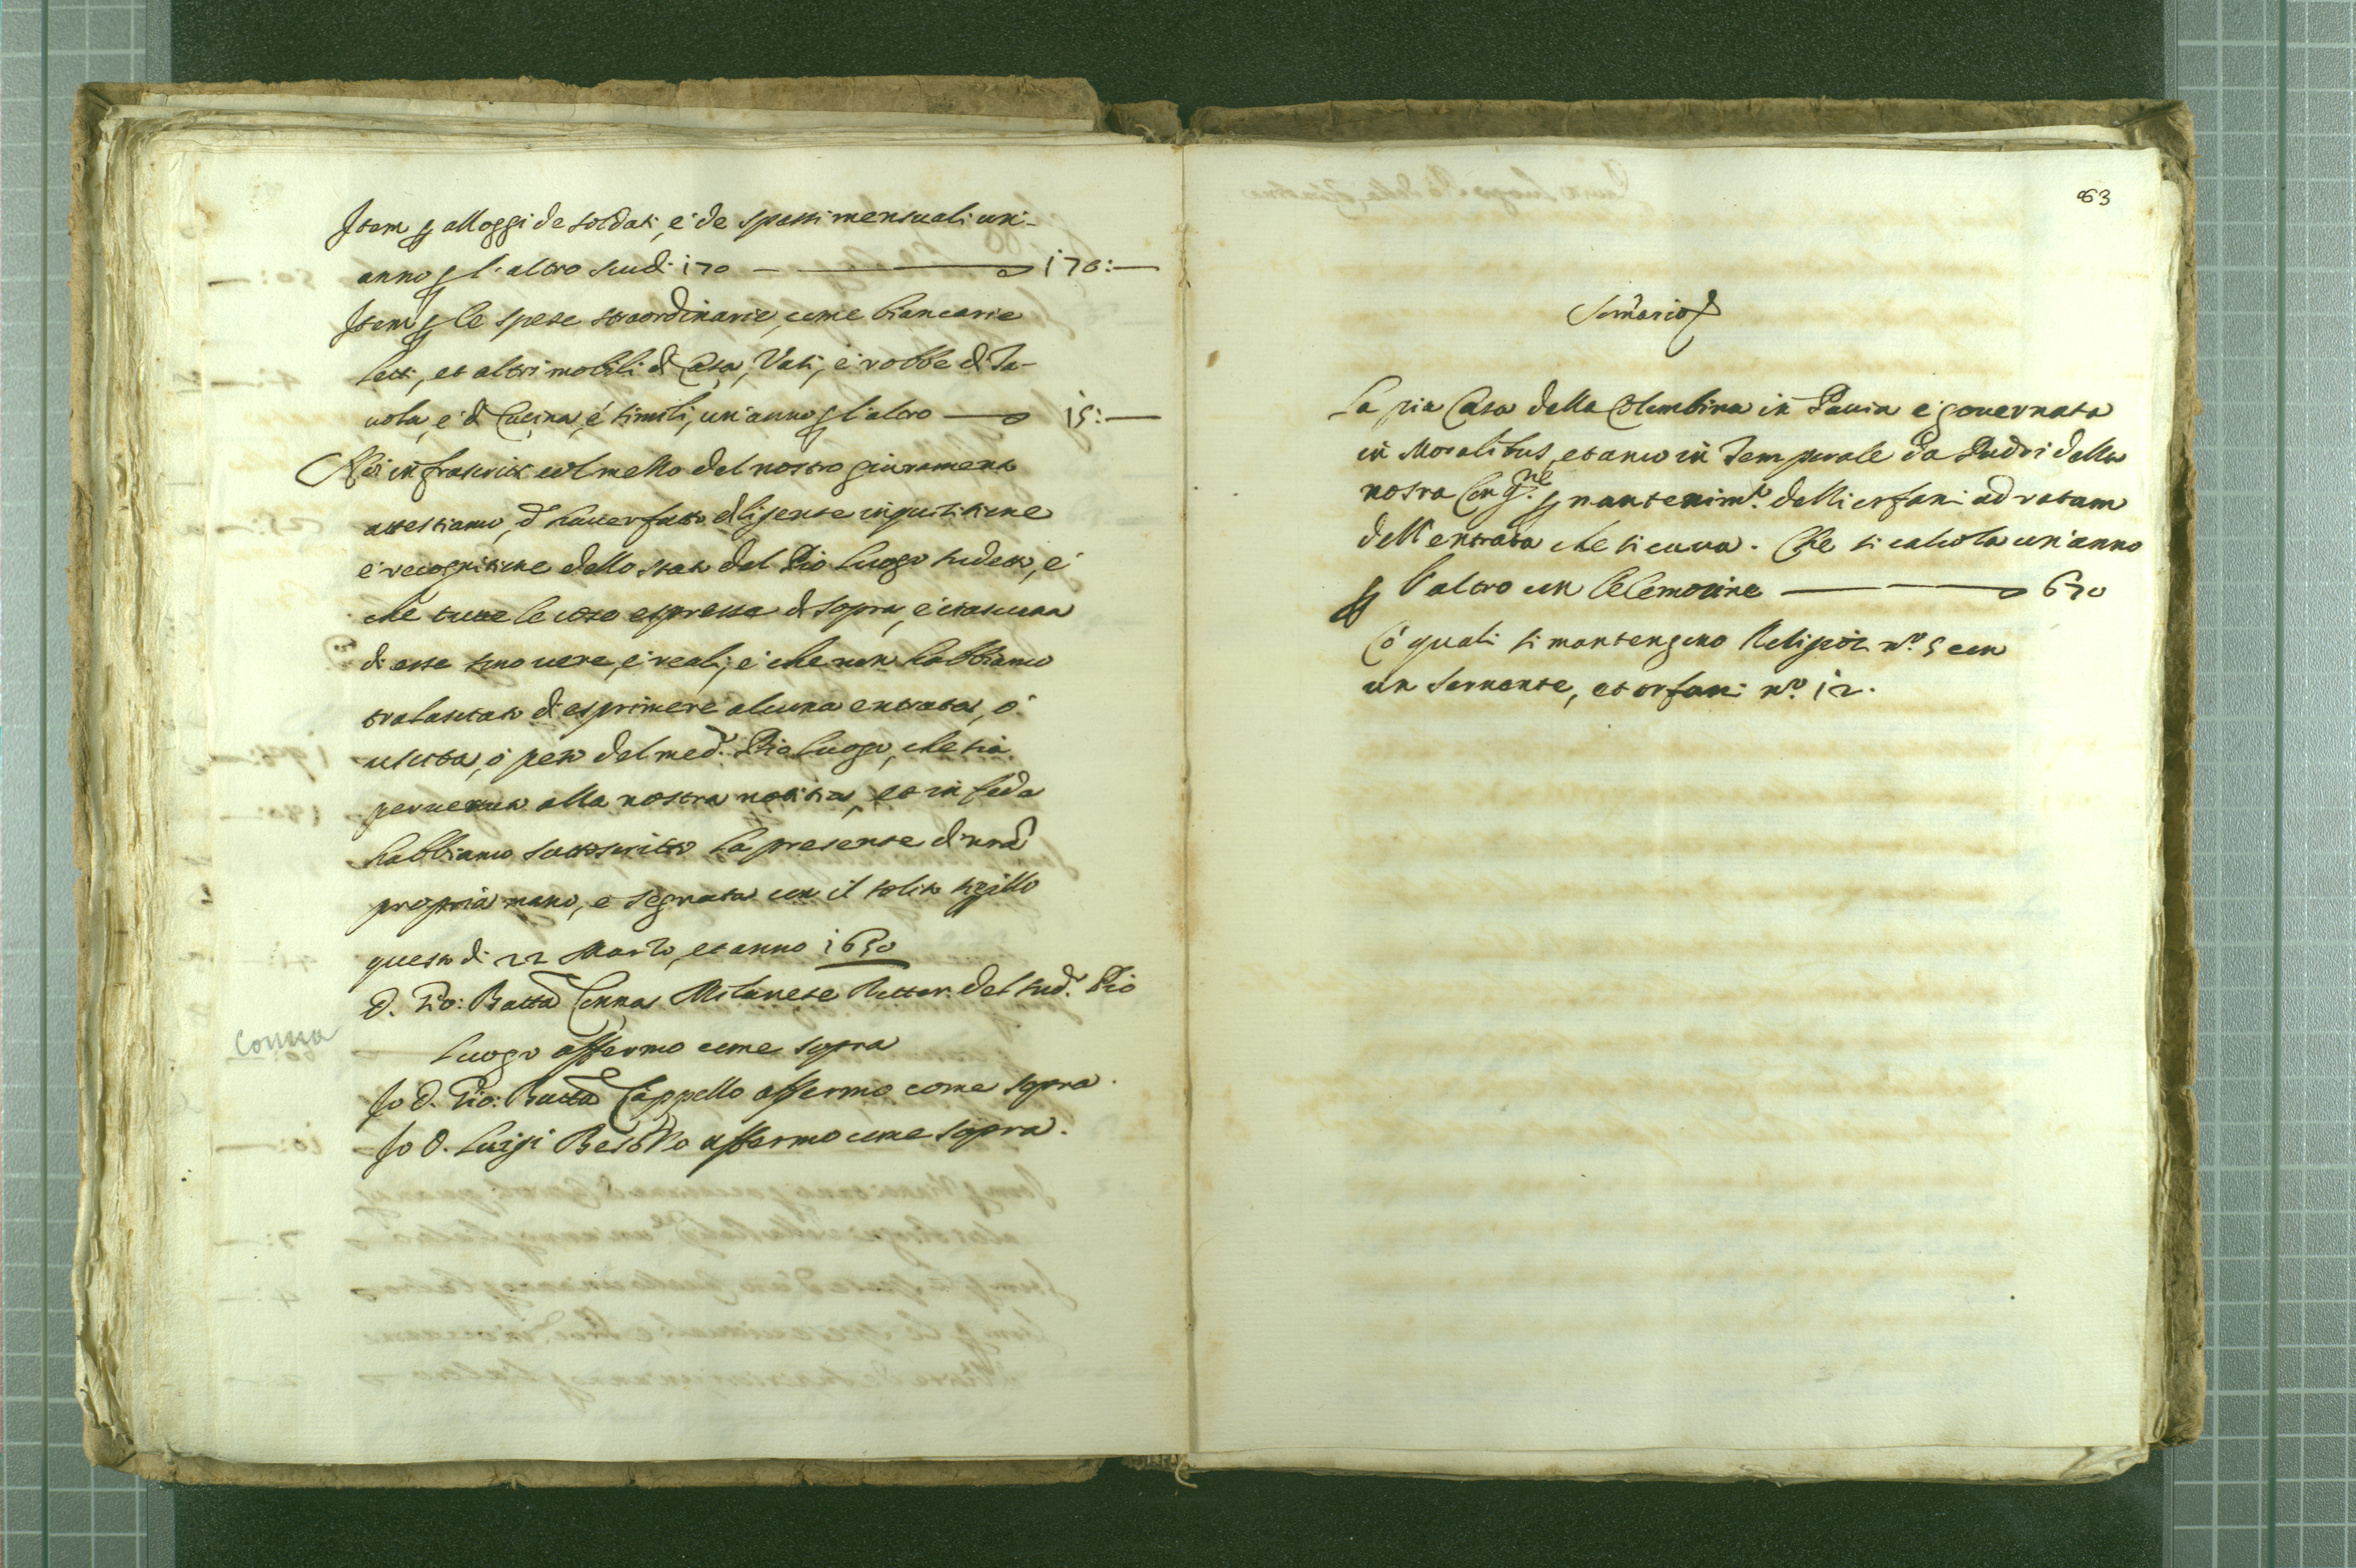 Item p alloggi de soldati, e' de spassi mensuali un'
anno p l'altro scudi 170 — 170:—
Item p le spese straordinarie, come biancarie
letti, et altri mobili di Casa, Vasi, e' robbe di Ta-
uola, e' di Cucina, e' simili, un'anno p l'altro — 15:—
Noi infrascritti col mezzo del nostro giuramento
attestiamo, d'hauer fatto diligente inquisitione
e' recognitione dello stato del Pio Luogo sudetto, e'
che tutte le cose espresse di sopra, e' ciascuna
di esse sono uere, e' reali, e' che non habbiamo
tralasciato di esprimere alcuna entrata, o'
uscita, o' peso del med.o Pio Luogo, che sia
peruenuta alla nostra notitia, et in fede
habbiamo sottoscritto la presente di nra
propria mano, e segnata con il solito sigillo
questo di 22 Marzo, et anno 1650
D. Gio: Batta Conna Milanese Rettor. del sud.o Pio
Conna
Luogo affermo come sopra
Io D. Gio: Batta Cappello affermo come sopra.
Io D. Luigi affermo come sopra.
63
Somario
La pia Casa della Colombina in Pauia e' gouernata
in Moralibus, et anco in Temporale da Padri della
nostra Cong.ne p mantenim.to delli orfani ad ratam
dell'entrata che si caua. Che si calcola un'anno
p l'altro con l'elemosine — 670
Co' quali si mantengono Religiosi n.o 5 con
un seruente, et orfani n.o 12.